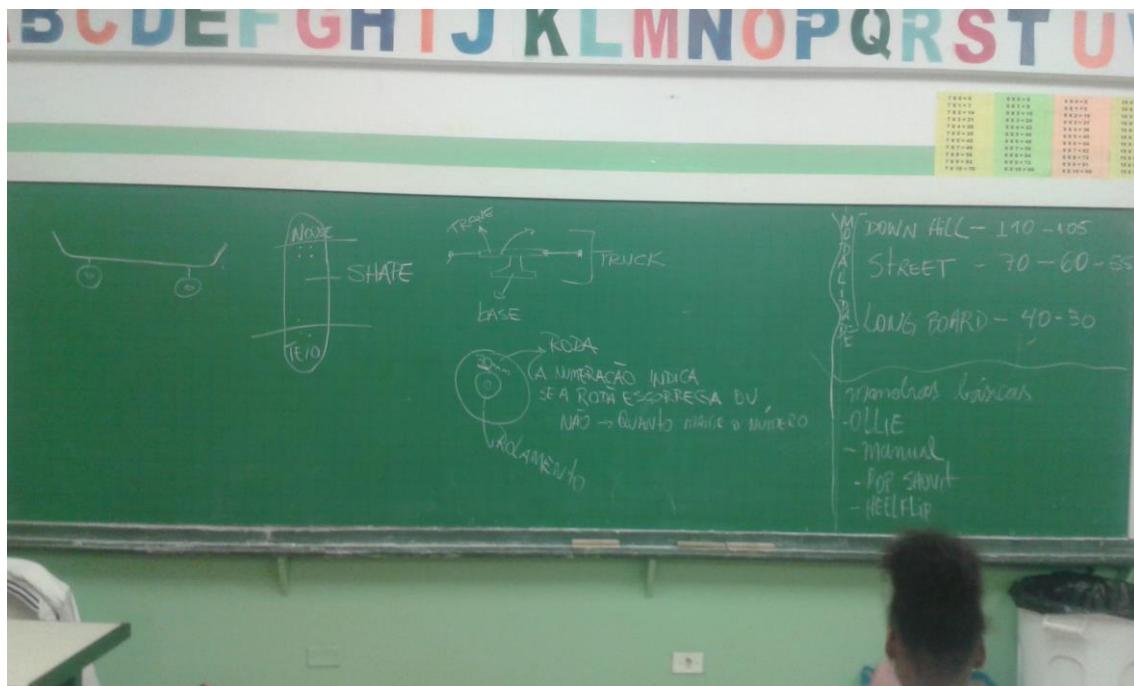 BCDEFGHIJKLMNOPQRSTU
NOUSE
SHAPE
TEIO
TRUCK
bASE
RODA
30mm
A NUMERAÇÃO INDICA
SE A RODA ESCORREGA OU
NÃO → QUANTO MAIOR O NÚMERO
ROLAMENTO
MODALIDADE
DOWN HILL - 110 - 105
STREET - 70 - 60 - 55
LONG BOARD - 40-30
manobras básicas
- OLLIE
- Manual
- POP SHOVIT
- HEELFLIP